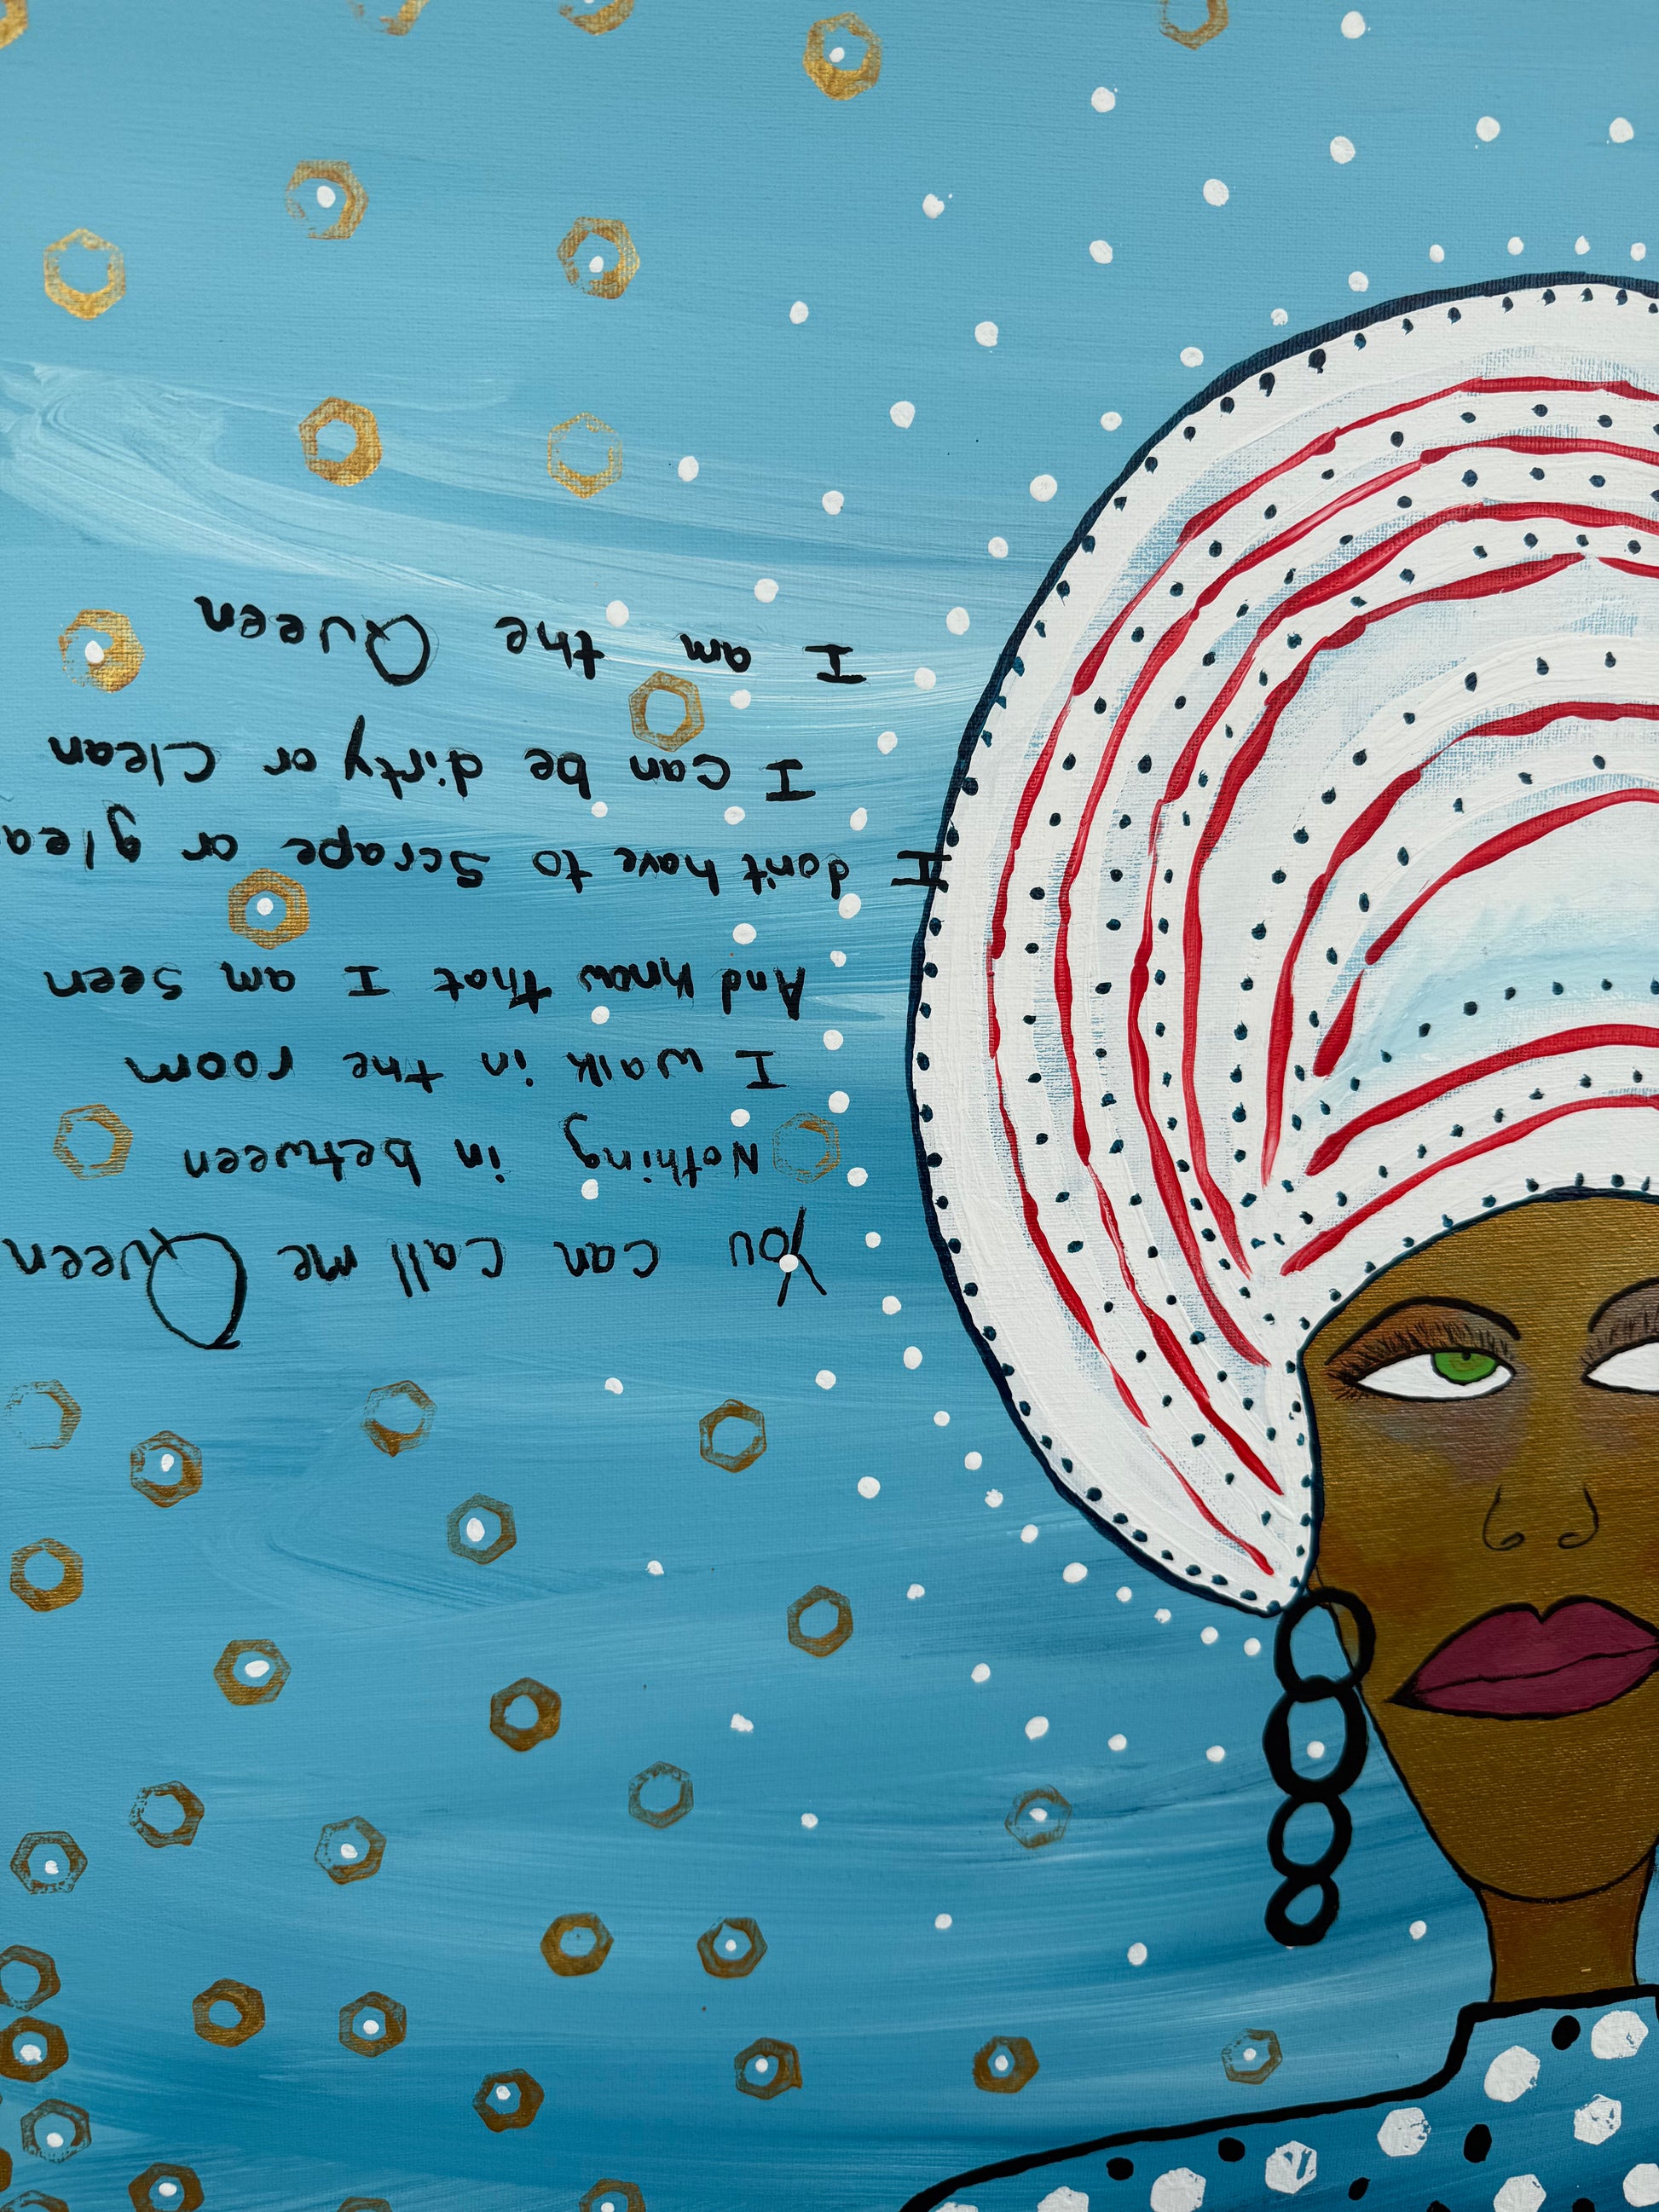 You can call me Queen
Nothing in between
I walk in the room
And know that I am seen
I don't have to scrape or glea
I can be dirty or clean
I am the Queen